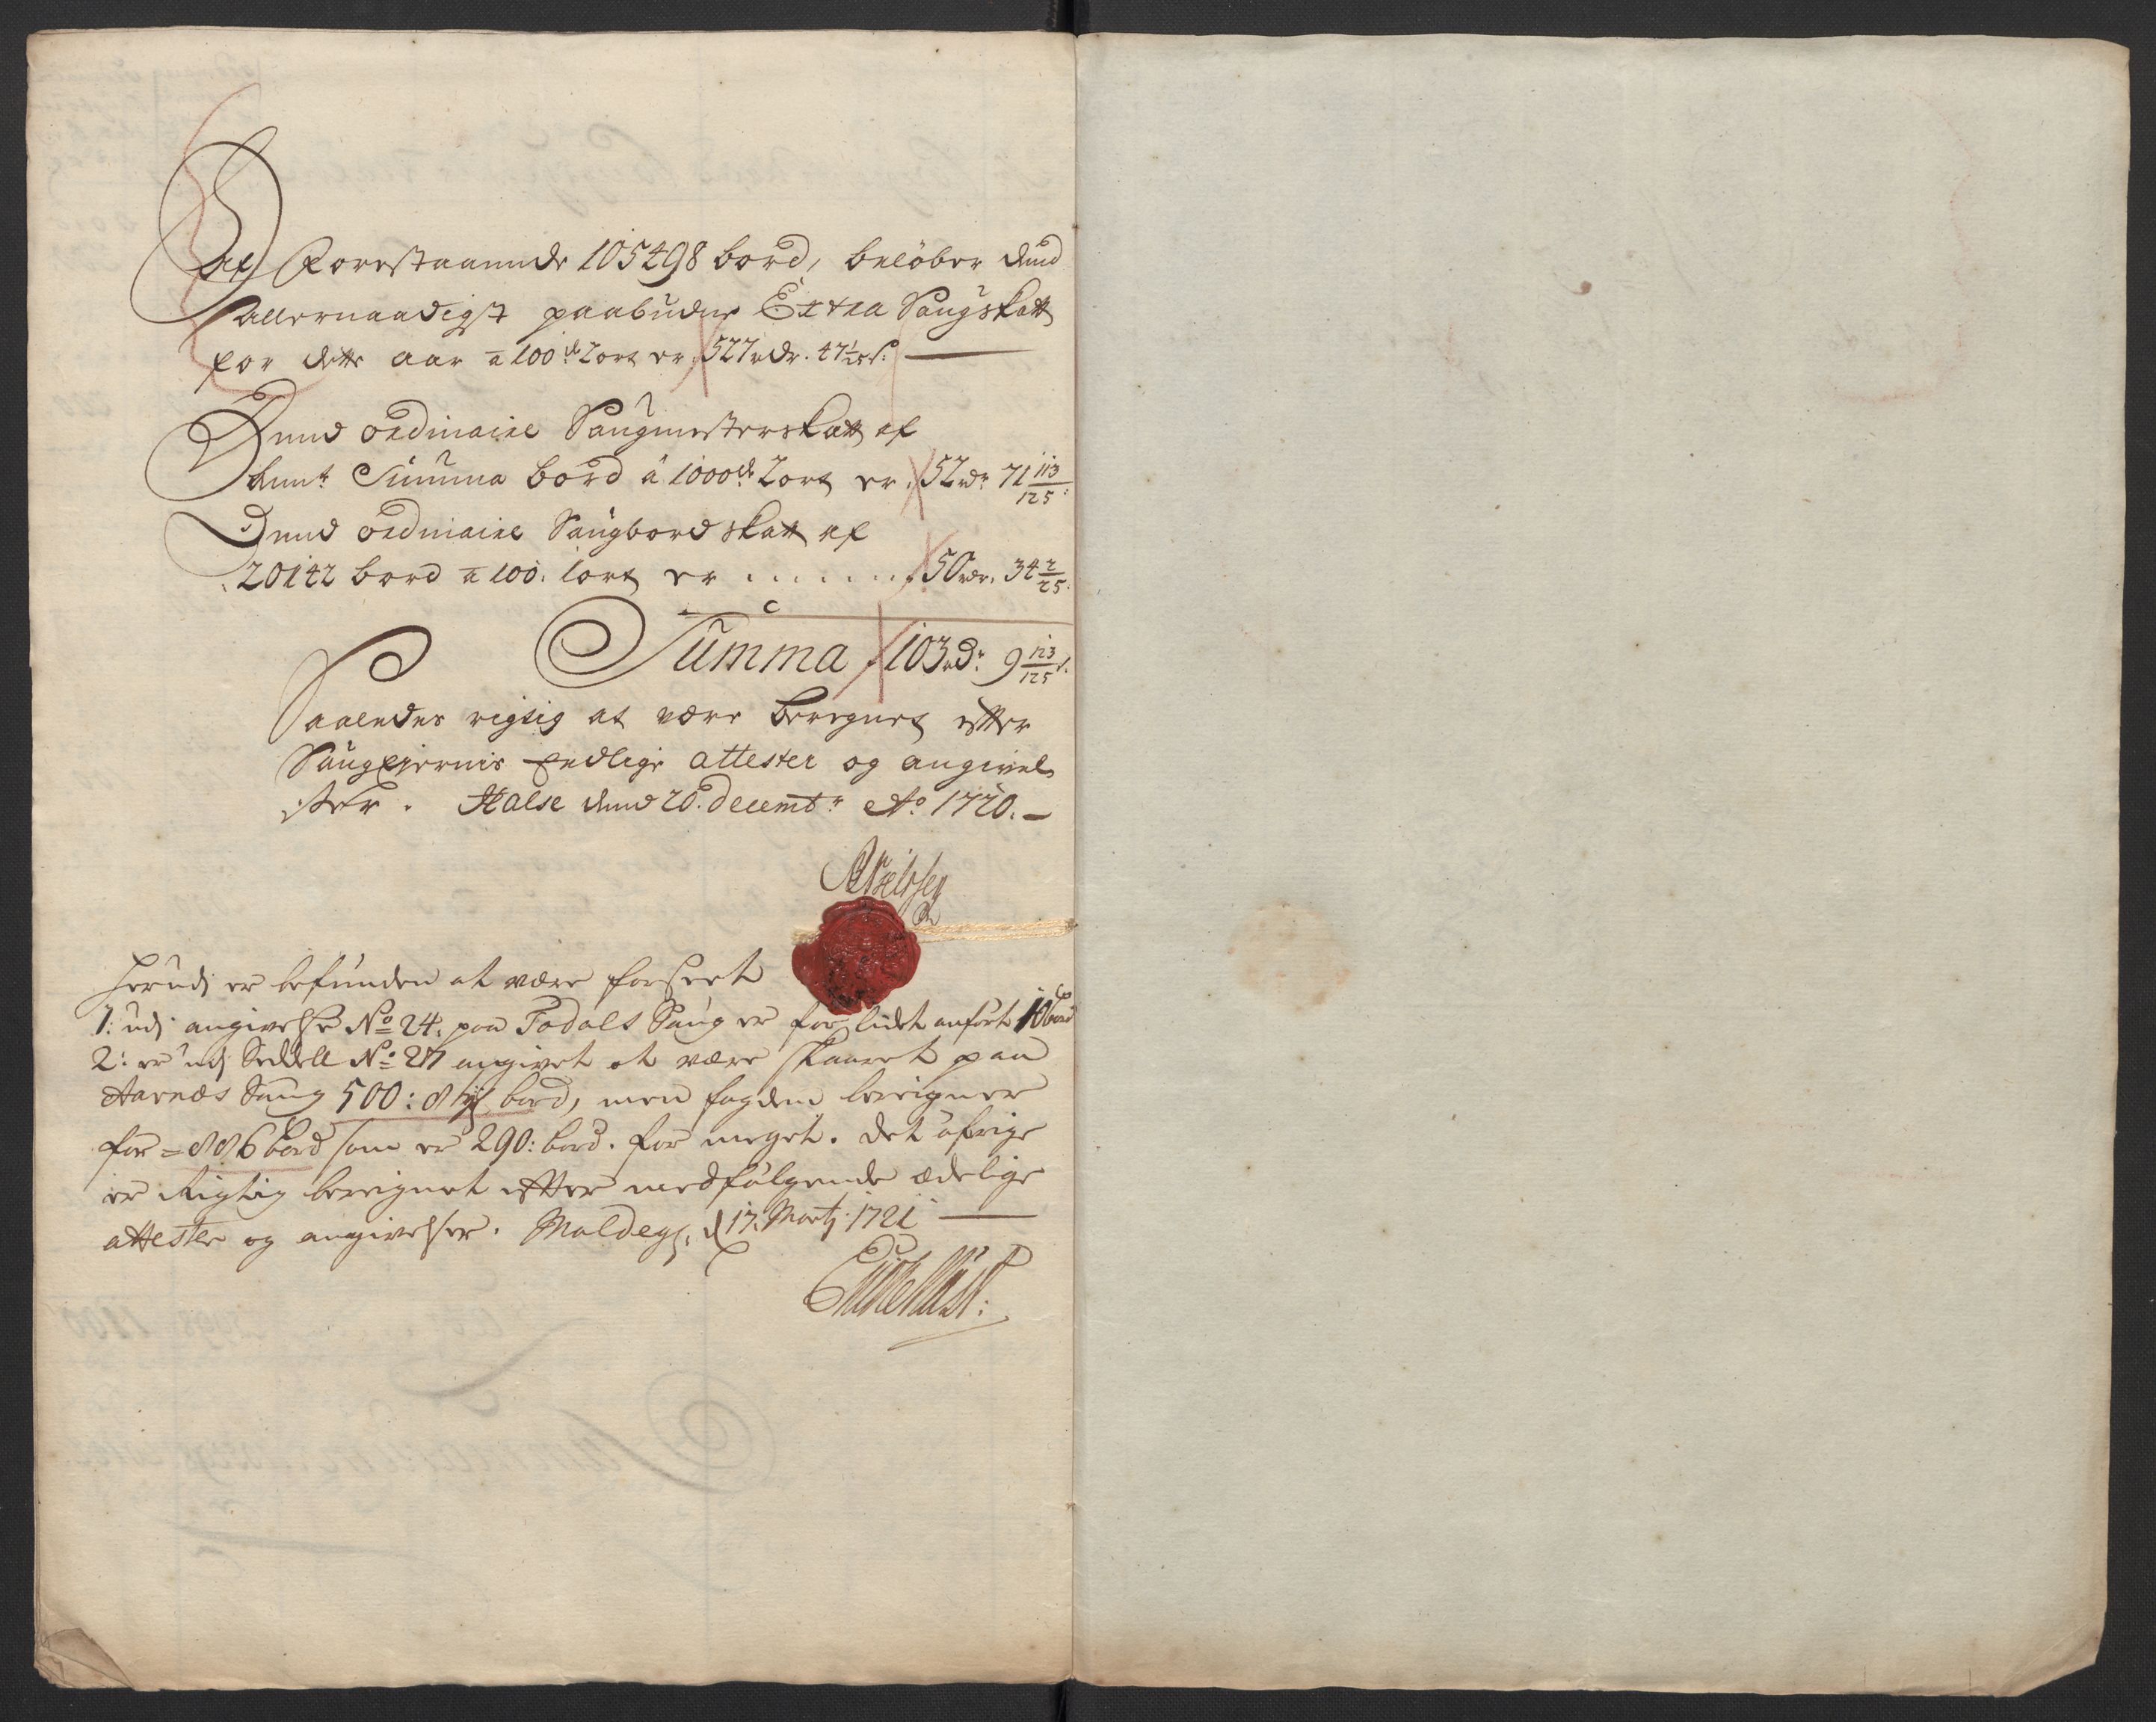 Af Forestaaende 105498 bord, beløber dend
allernaadigst paabudne Extra Saugskatt
for dette aar à 100de 1 ort er 527 rdr. 47 1/25 s:
Dend ordinaire Saugmesterskatt af
bemt Summa bord á 1000de 1 ort er 52 rdr 71 113/125:
Dend ordinaire Saugbord skatt af
20142 bord à 100: 1 ort er . . . . . . . 50 rdr. 34 2/25:
Summa 103 rdr: 9 123/125 s.
Saaledes rigtig at være beregnet efter
Saugeyernis Eedlige attester og angivel
ser. Halse dend 20. decembr Ao 1720. –
Herudj er befunden at være forseet
1: udj angivelse No 24. paa Todals Saug er for lidet anført 10 bord
2: er udj Seddell No 27 angivet at være skaaret paa
Aarnæs Saug 500: 8 bord, men fogden bereigner
for = 886 bord som er 290: bord. for meget. det øfrige
er Rigtig bereignet efter medfølgende ædelige
attester og angivelser. Moldeg. d 17. Martj 1721